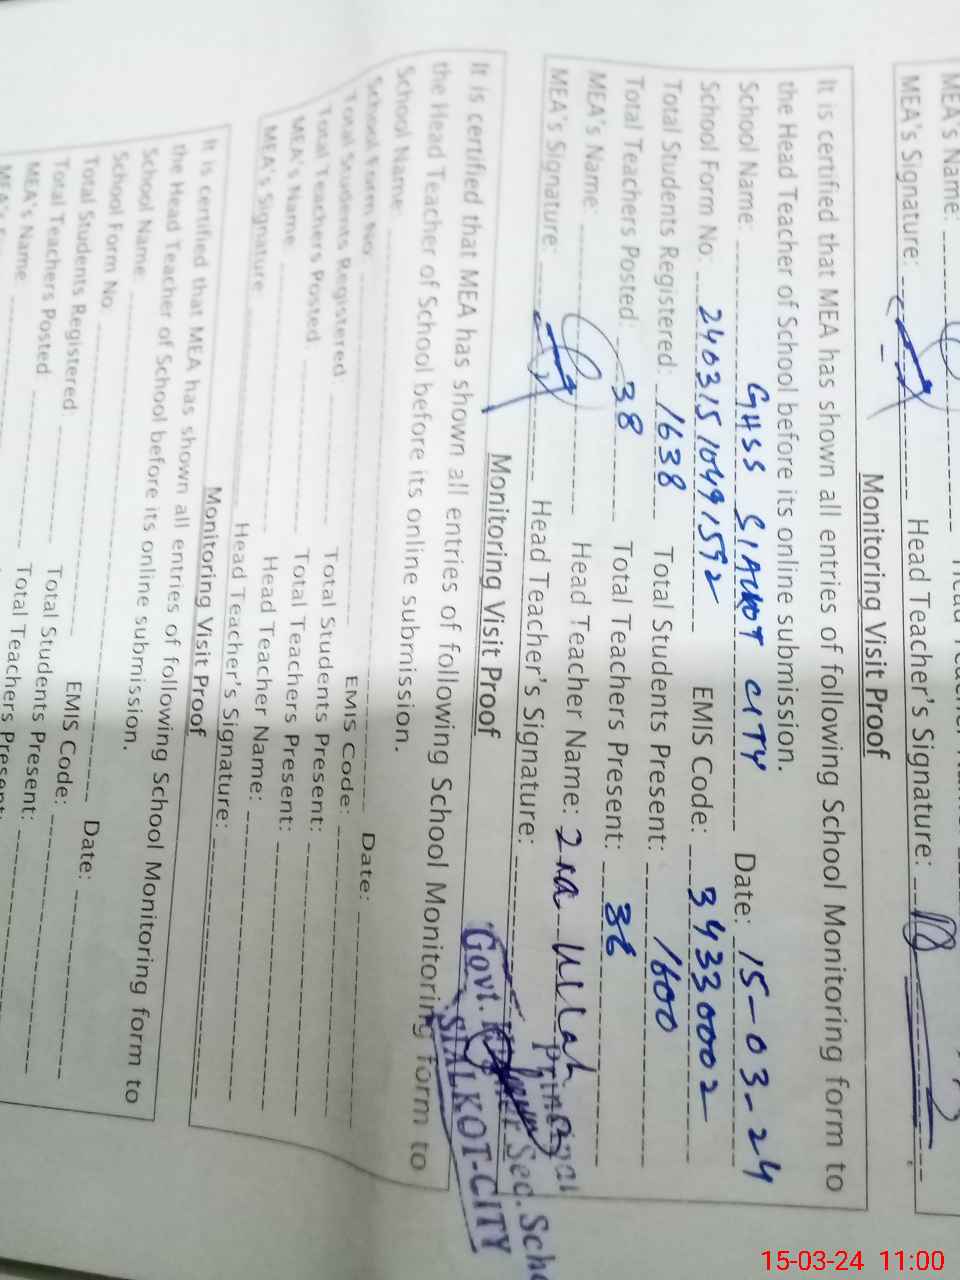 MEA's Name:
MEA's Signature: Head Teacher's Signature:
Monitoring Visit Proof
It is certified that MEA has shown all entries of following School Monitoring form to
the Head Teacher of School before its online submission.
School Name: GHSS SIALKOT CITY Date: 15-03-24
School Form No: 24031510491592 EMIS Code: 34330002
Total Students Registered: 1638 Total Students Present: 1600
Total Teachers Posted: 38 Total Teachers Present: 36
MEA's Name: Head Teacher Name: Ullah
MEA's Signature: Head Teacher's Signature:
Principal
Govt. Sec. Scho
SIALKOT-CITY
Monitoring Visit Proof
It is certified that MEA has shown all entries of following School Monitoring form to
the Head Teacher of School before its online submission.
School Name: Date:
School Form No: EMIS Code:
Total Students Registered: Total Students Present:
Total Teachers Posted: Total Teachers Present:
MEA's Name: Head Teacher Name:
MEA's Signature: Head Teacher's Signature:
Monitoring Visit Proof
It is certified that MEA has shown all entries of following School Monitoring form to
the Head Teacher of School before its online submission.
School Name: Date:
School Form No: EMIS Code:
Total Students Registered Total Students Present:
Total Teachers Posted Total Teachers Present:
MEA's Name
15-03-24 11:00